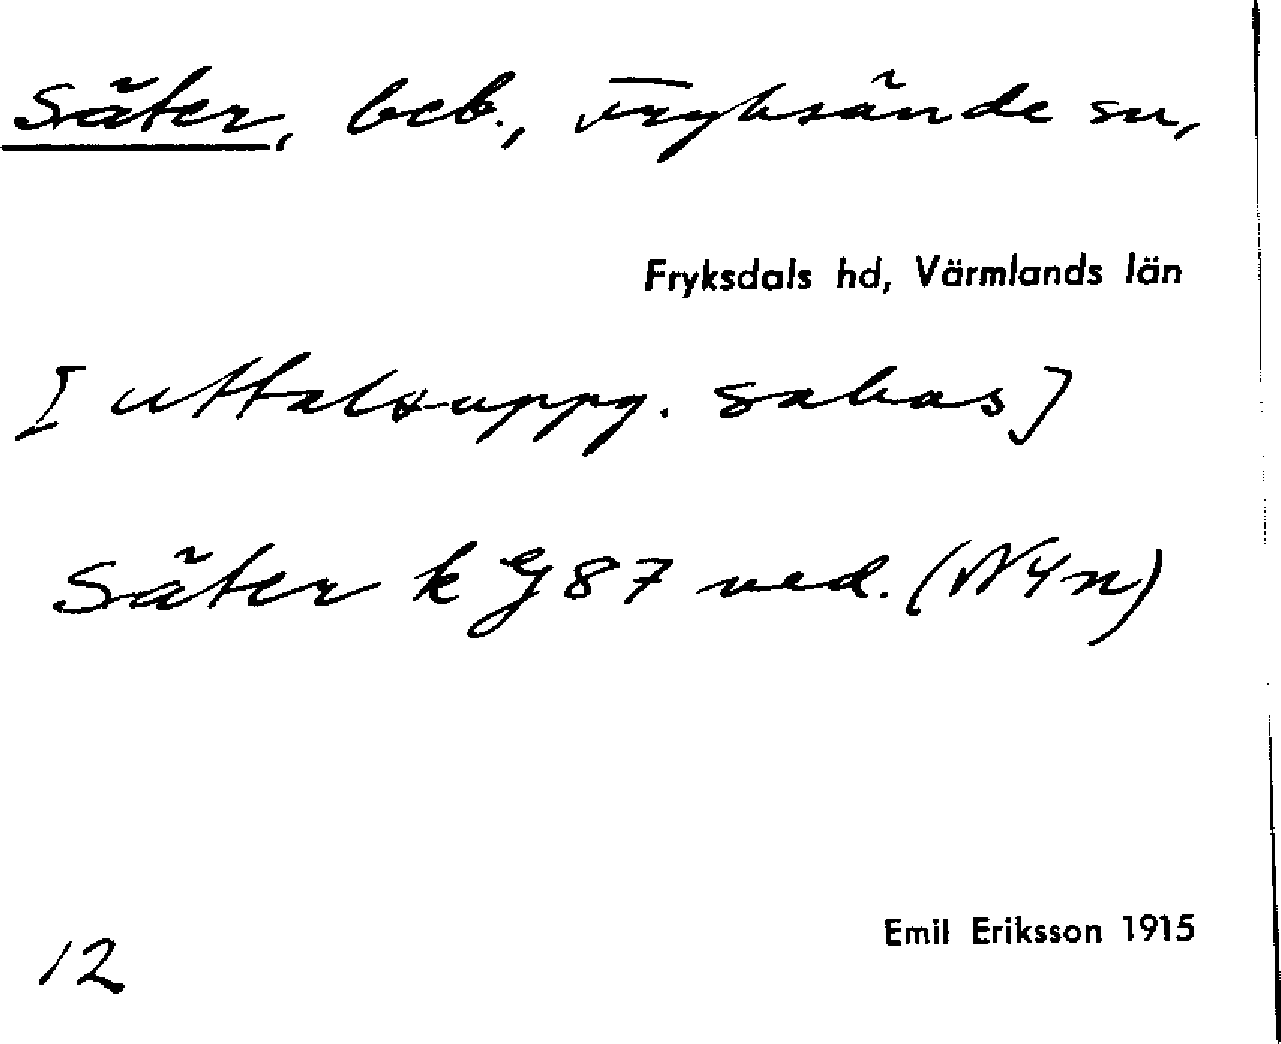 Säter, beb., Fryksände sn,
Fryksdals hd, Värmlands län
[uttalsuppg. saknas]
Säter k G 87 ned. (N4n)
12
Emil Eriksson 1915